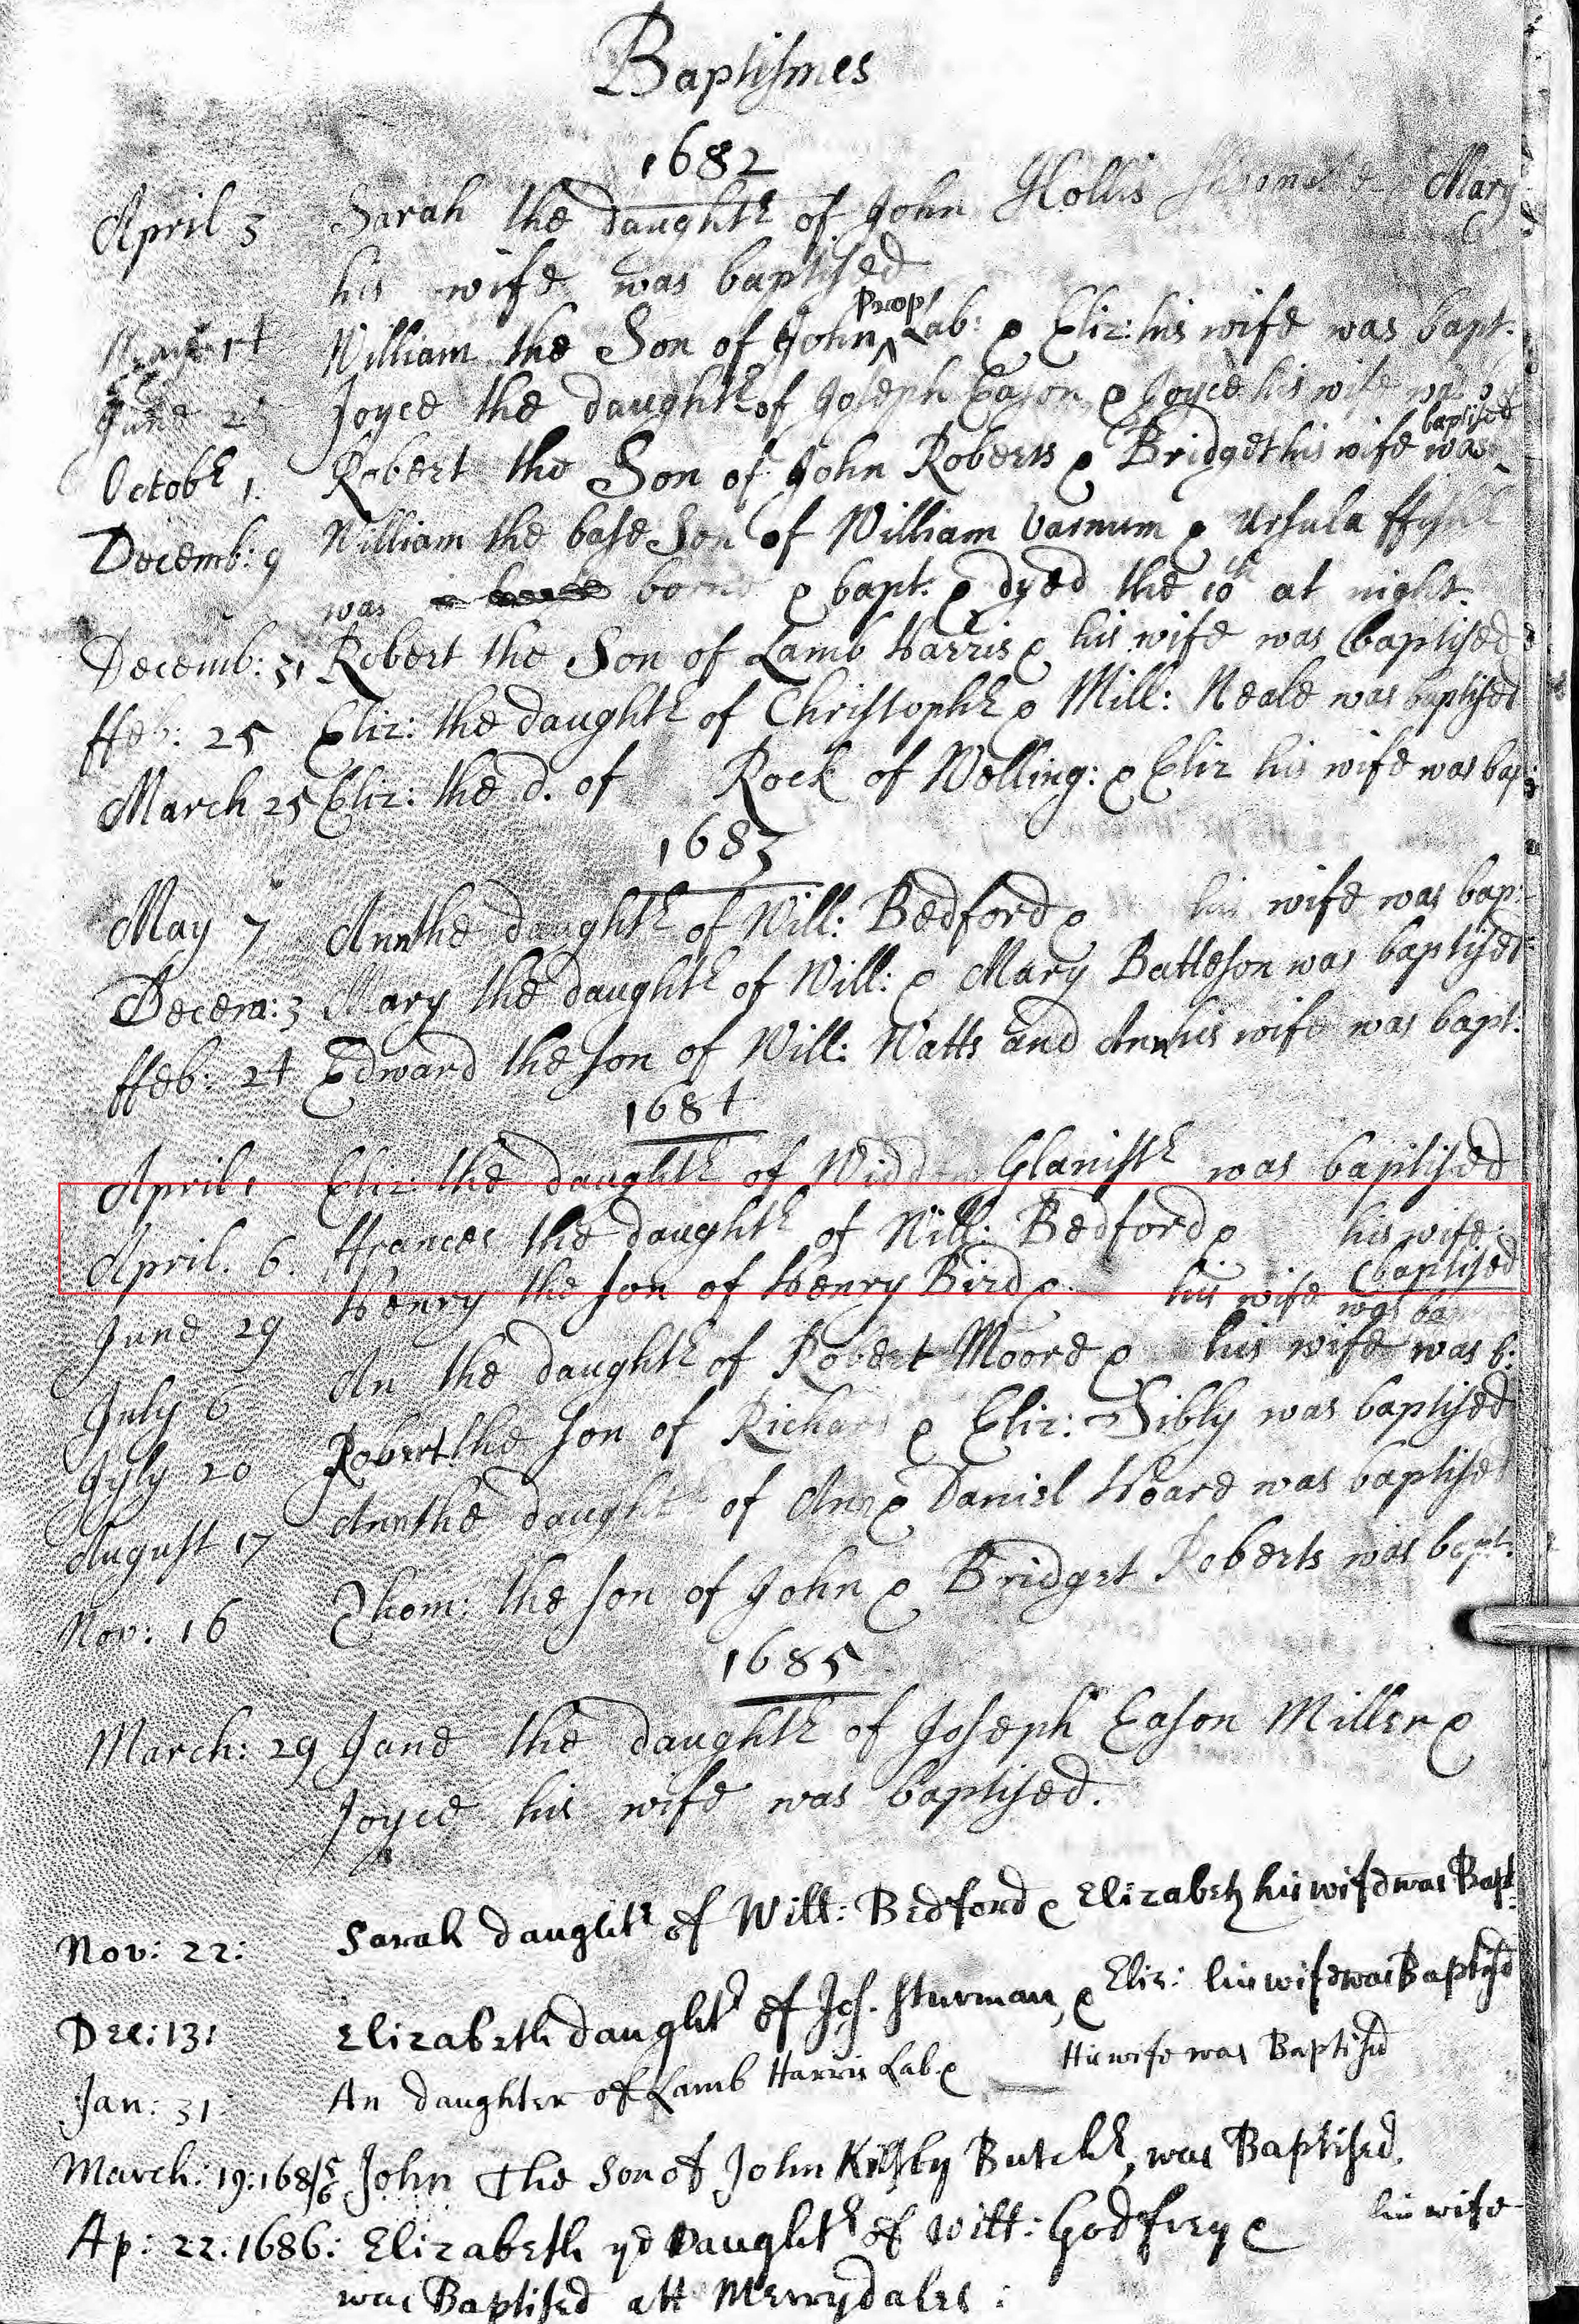 Baptismes
1682
April 3 Sarah the daughtr of John Hollis & Mary
his wife was baptised
William the Son of John Prop Lab: & Eliz: his wife was bapt.
June Joyce the daughtr of Joseph Eason & Joyce his wife was
Octobr 1. Robert the Son of John Roberts & Bridget his wife was baptised
Decemb: 9 William the base Son of William Varnum & Ursula
was borne & bapt. & dyed the 10th at night.
Decemb: 31 Robert the Son of Lamb Harris & his wife was baptised
ffeb: 25 Eliz: the daughtr of Christophr & Mill: Neale was baptised
March 25 Eliz: the d. of Rock of Welling: & Eliz his wife was bap:
1683
May 7 Ann the daughtr of Will: Bedford & his wife was bap:
Decem: 3 Mary the daughtr of Will: & Mary Batteson was baptised
ffeb: 24 Edward the son of Will: Watts and Ann his wife was bapt.
1684
April 1 Eliz: the daughtr of Widdow Glanistr was baptised
April. 6. ffrances the daughtr of Will: Bedford & his wife baptised
June 29 Henry the son of Henry Bird & his wife was ba
July 6 An the daughtr of Robert Moore & his wife was b:
July 20 Robert the son of Richard & Eliz: Sibly was baptised
August 17 Ann the daughtr of Ann & Daniel Hoare was baptised
Nov: 16 Thom: the son of John & Bridget Roberts was bapt.
1685
March: 29 Jane the daughtr of Joseph Eason Miller &
Joyce his wife was baptised.
Nov: 22: Sarah daughtr of Will: Bedford & Elizabeth his wife was Bapt:
Dec: 13: Elizabeth daughtr of Jos. Sturman, & Eliz: his wife was Baptisd
Jan: 31: An daughter of Lamb Harris Lab. & His wife was Baptisd
March: 19: 1685/6 John The Son of John Kilsby Butchr, was Baptised.
Ap: 22: 1686: Elizabeth ye Daughtr of Will: Godfrey & his wife
was Baptised att Merrydales: